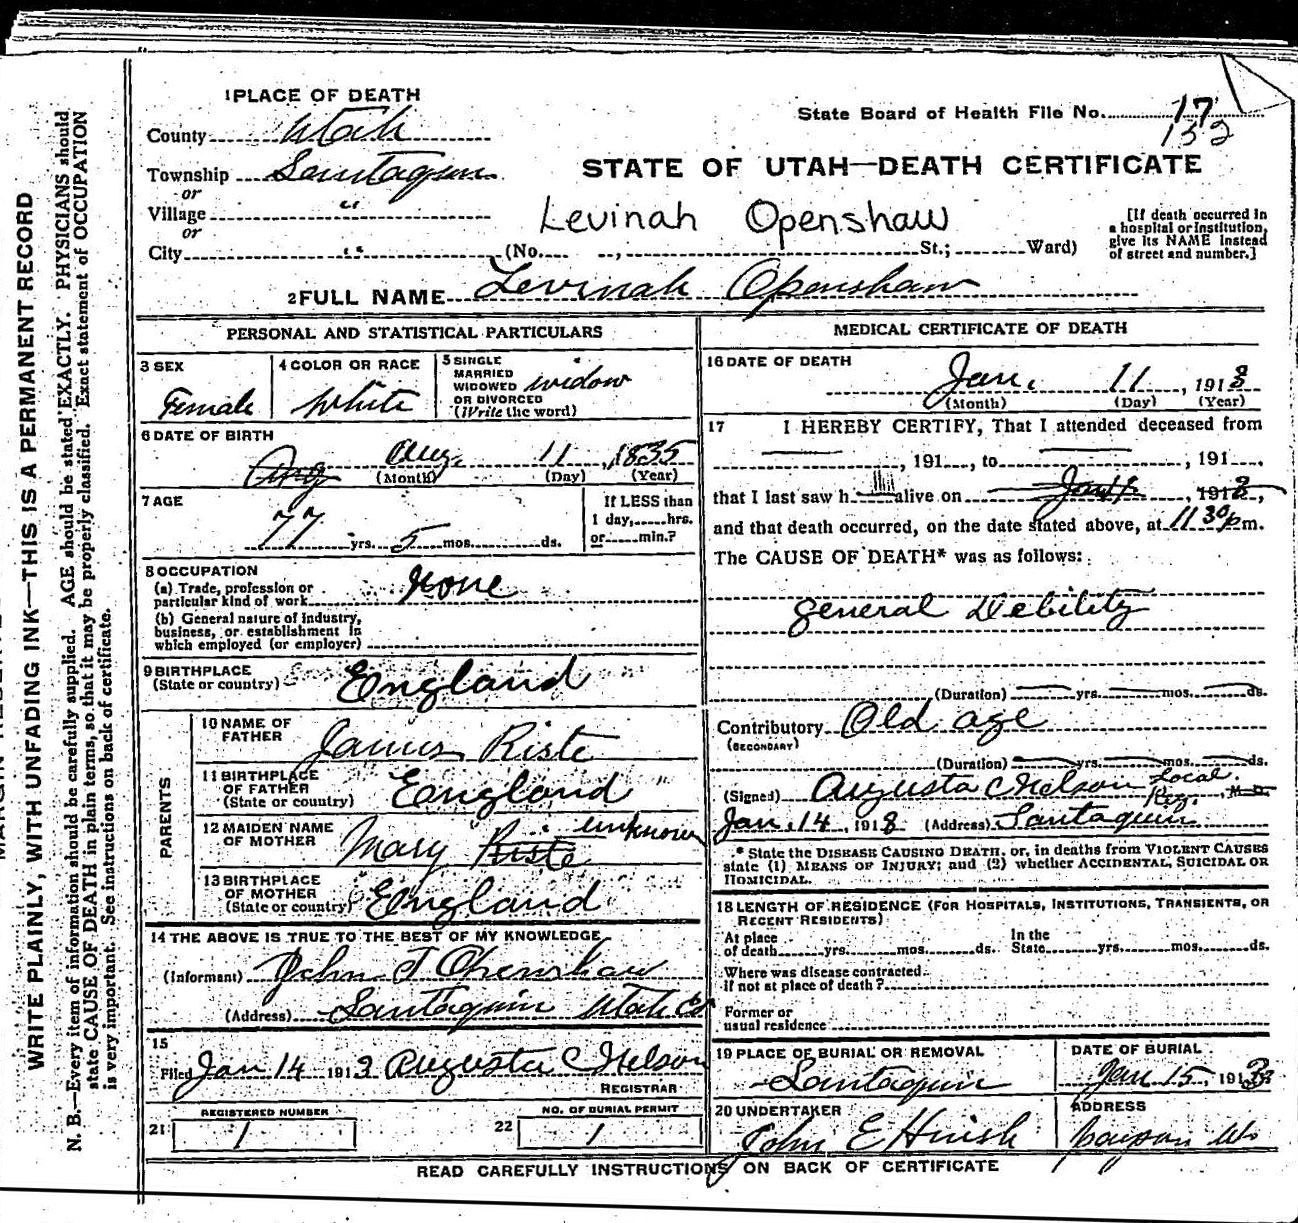 1 PLACE OF DEATH
County Utah
Township Santaquin
or
Village "
or
City "
State Board of Health File No. 17
132
STATE OF UTAH—DEATH CERTIFICATE
Levinah Openshaw
(No. , St.; Ward)
[If death occurred in
a hospital or institution,
give its NAME instead
of street and number.]
2 FULL NAME Levinah Openshaw
PERSONAL AND STATISTICAL PARTICULARS
3 SEX
Female
4 COLOR OR RACE
White
5 SINGLE
MARRIED
WIDOWED
OR DIVORCED
(Write the word)
widow
6 DATE OF BIRTH
Aug Aug. 11, 1835
(Month) (Day) (Year)
7 AGE
77 yrs. 5 mos. ds.
If LESS than
1 day, hrs.
or min.?
8 OCCUPATION
(a) Trade, profession or
particular kind of work None
(b) General nature of industry,
business, or establishment in
which employed (or employer)
9 BIRTHPLACE
(State or country) England
PARENTS
10 NAME OF
FATHER James Riste
11 BIRTHPLACE
OF FATHER
(State or country) England
12 MAIDEN NAME
OF MOTHER Mary Riste unknown
13 BIRTHPLACE
OF MOTHER
(State or country) England
14 THE ABOVE IS TRUE TO THE BEST OF MY KNOWLEDGE
(Informant) John T Openshaw
(Address) Santaquin Utah Co
15
Filed Jan 14 1913 Augusta C Nelson
REGISTRAR
21 REGISTERED NUMBER
1
22 NO. OF BURIAL PERMIT
1
MEDICAL CERTIFICATE OF DEATH
16 DATE OF DEATH
Jan. 11, 1913
(Month) (Day) (Year)
17 I HEREBY CERTIFY, That I attended deceased from
, 191 , to , 191 ,
that I last saw h alive on Jan 11, 1913,
and that death occurred, on the date stated above, at 11 30 p m.
The CAUSE OF DEATH* was as follows:
general Debility
(Duration) yrs. mos. ds.
Contributory Old age
(SECONDARY)
(Duration) yrs. mos. ds.
(Signed) Augusta C Nelson Local
Reg. , M.D.
Jan. 14, 1913 (Address) Santaquin
* State the DISEASE CAUSING DEATH, or, in deaths from VIOLENT CAUSES
state (1) MEANS OF INJURY; and (2) whether ACCIDENTAL, SUICIDAL OR
HOMICIDAL.
18 LENGTH OF RESIDENCE (FOR HOSPITALS, INSTITUTIONS, TRANSIENTS, OR
RECENT RESIDENTS)
At place
of death yrs. mos. ds.
In the
State yrs. mos. ds.
Where was disease contracted
if not at place of death?
Former or
usual residence
19 PLACE OF BURIAL OR REMOVAL
Santaquin
DATE OF BURIAL
Jan 15, 1913
20 UNDERTAKER
John E Huish
ADDRESS
Payson Ut
READ CAREFULLY INSTRUCTIONS ON BACK OF CERTIFICATE
WRITE PLAINLY, WITH UNFADING INK—THIS IS A PERMANENT RECORD
N. B.—Every item of information should be carefully supplied. AGE should be stated EXACTLY. PHYSICIANS should
state CAUSE OF DEATH in plain terms, so that it may be properly classified. Exact statement of OCCUPATION
is very important. See instructions on back of certificate.